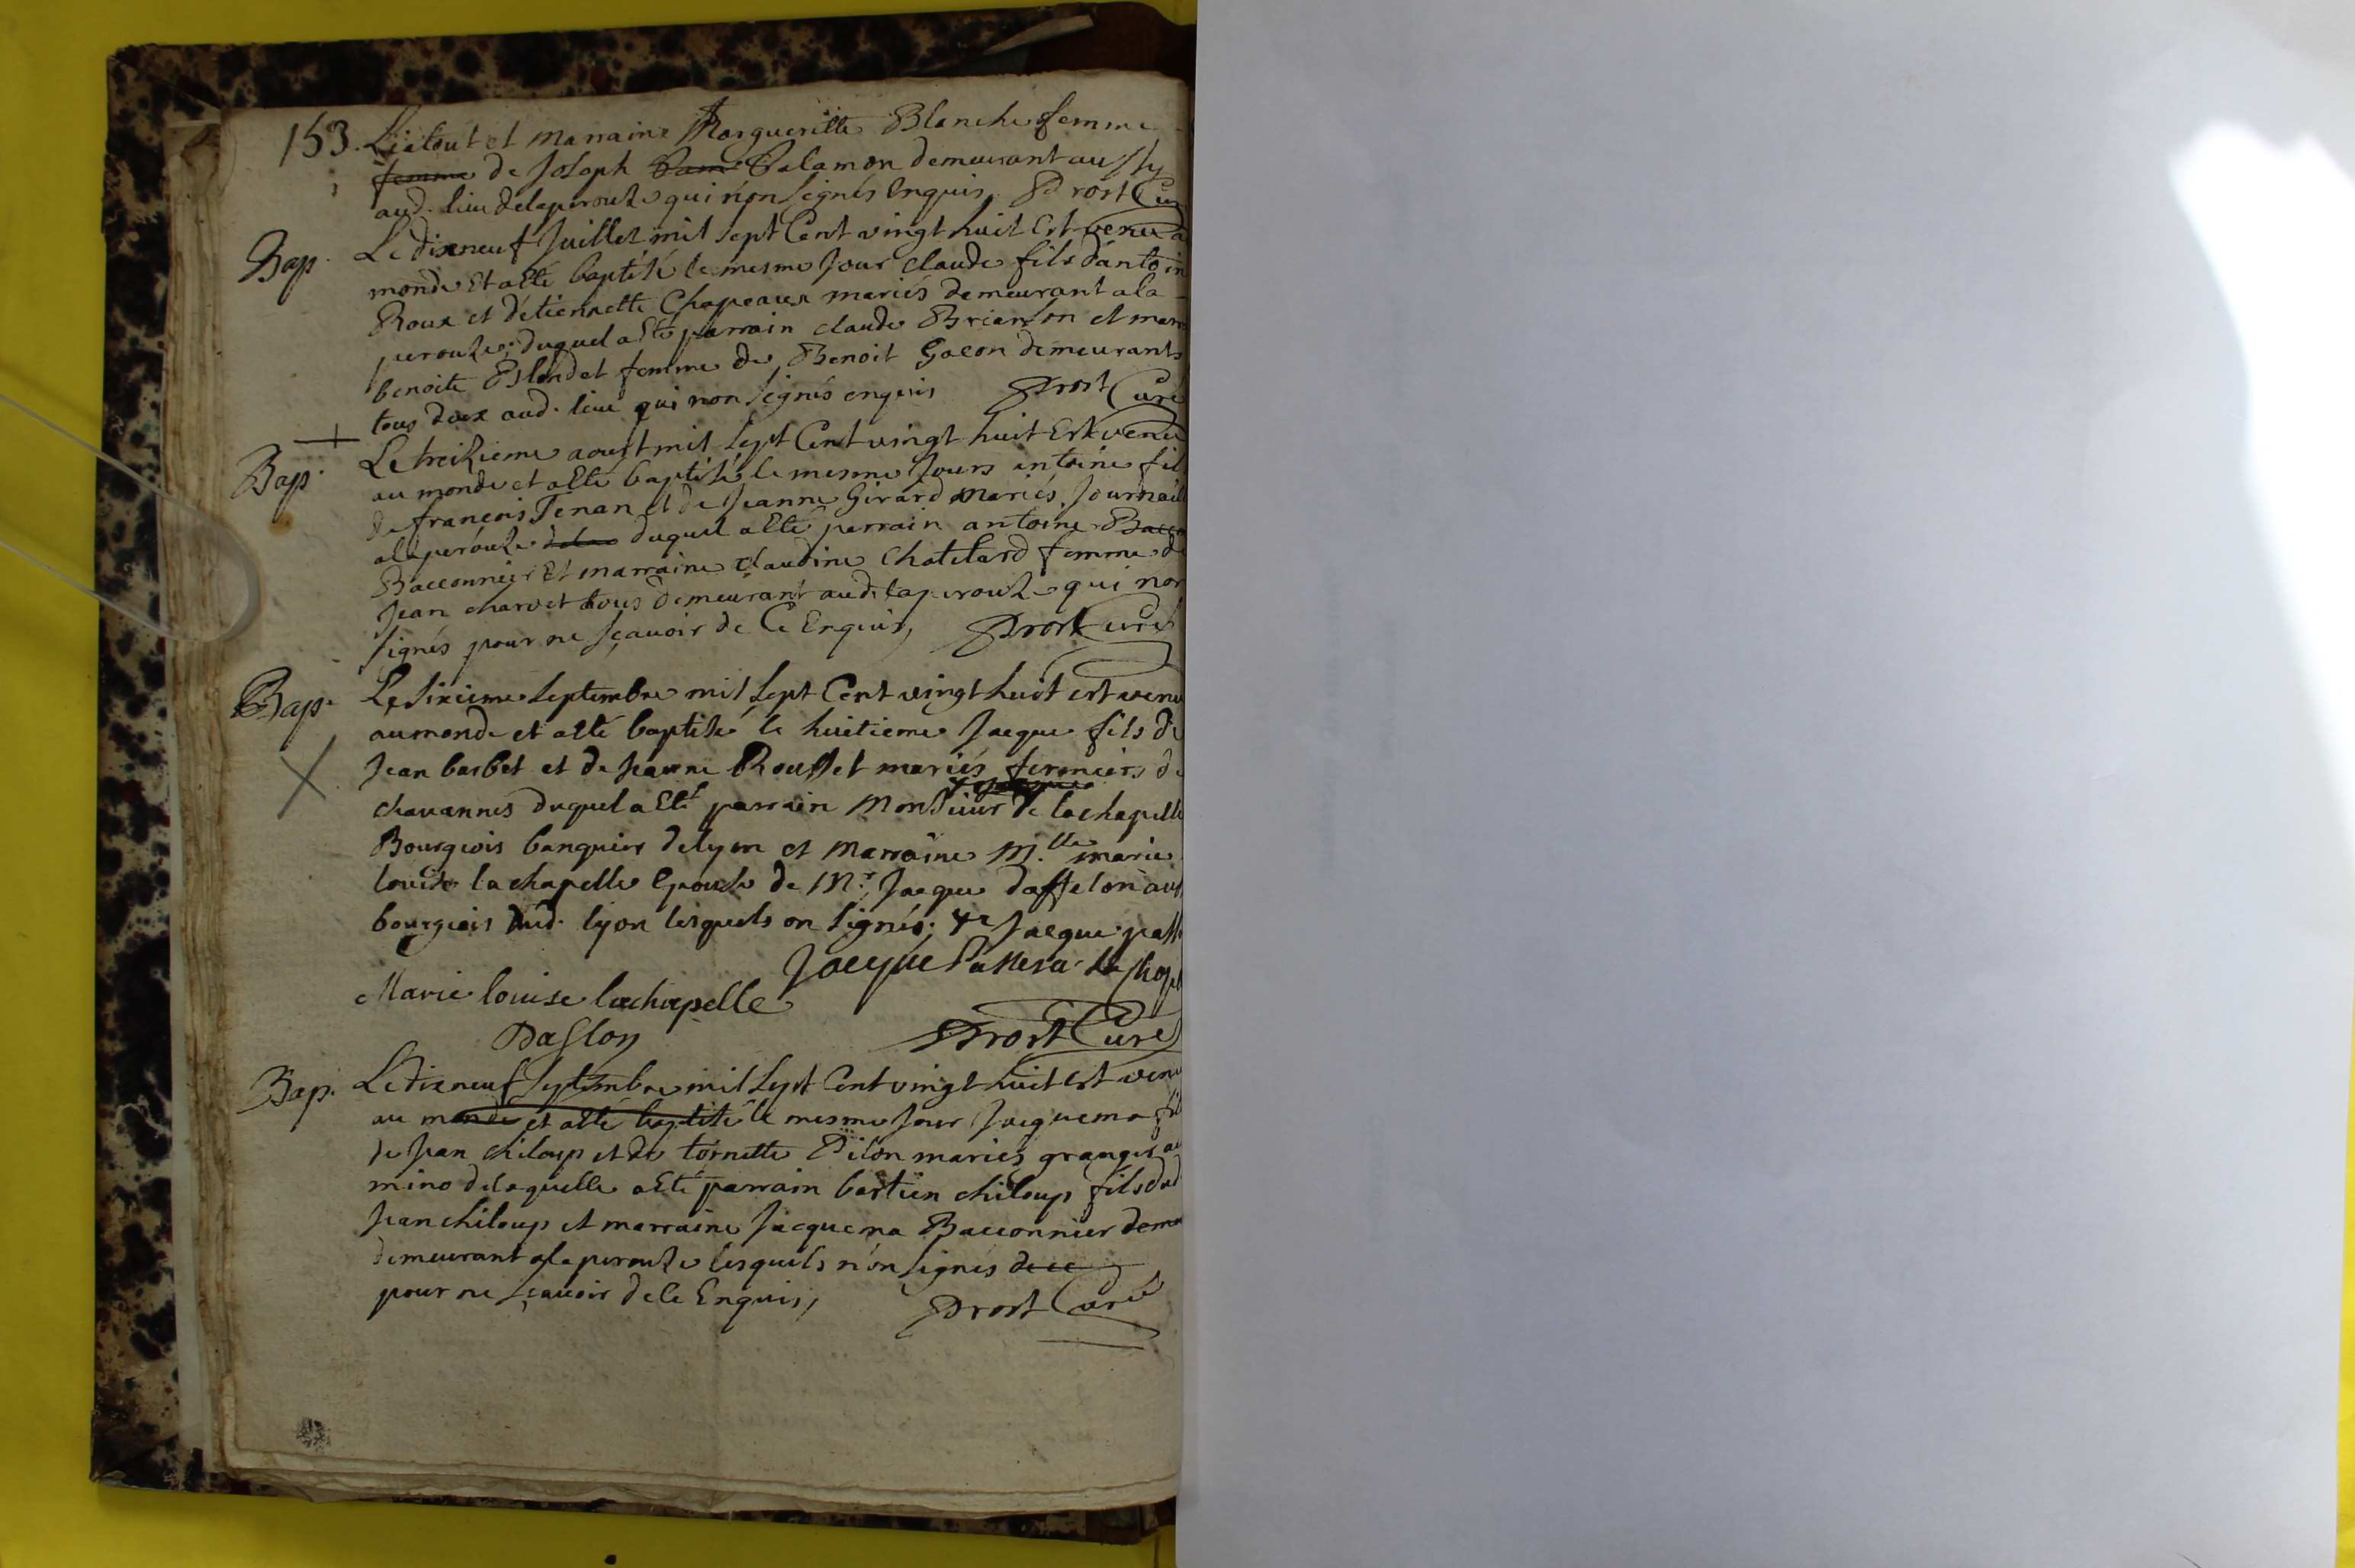 153. Liatout et marraine Margueritte Blanche femme
femme de Joseph Salamon demeurant aussy
aud. lieu delaperouze qui non signés enquis, Prost Curé
Bap. Le dixneuf Juillet mil sept Cent vingt huit Est venu a
monde Et a esté baptisé le mesme Jour claude fils d'antoin
Roux et d'etiennette Chapeaux mariés demeurant a la
perouze; duquel a esté parrain claude Brianson et mar
benoite Blondet femme de Benoit Gacon demeurants
tous deux aud. lieu qui non signés enquis Prost Curé
Bap. Le treizieme aoust mil sept Cent vingt huit Est venu
au monde et a esté baptisé le mesme Jours antoine fil
de françois Tenan et de Jeanne Girard mariés Journail
a laperouze duquel a esté parrain antoine Bacco
Bacconnier Et marraine claudine Chatelard femme de
Jean charvet tous demeurant aud. laperouze qui non
signés pour ne sçavoir de Ce Enquis, Prost Curé
Bap. Le sixieme septembre mil sept Cent vingt huit est venu
au monde et a esté baptisé le huitieme Jacque fils de
Jean barbet et de Jeanne Rousset mariés fermiers de
chavannes duquel a esté parrain Monsieur De lachapelle
Bourgeois banquier de lyon et Marraine M.lle marie
louise la chapelle epouse de M.r Jacque dasselon aus
bourgeois dud. lyon lesquels on signés; Jacque pass
Jacque Passera la chapel
Marie louise lachapelle
Daslon Prost Curé
Bap. Le dixneuf septembre mil sept Cent vingt huit est venu
au monde et a esté baptisé le mesme Jour Jacquema fil
de Jean chiloup et de tornette Pilon mariés granger au
mino delaquelle a esté parrain bastien chiloup fils dud
Jean chiloup et marraine Jacquema Bacconnier dem
demeurant a la perouze lesquels n'on signés de ce
pour ne sçavoir de Ce Enquis, Prost Curé